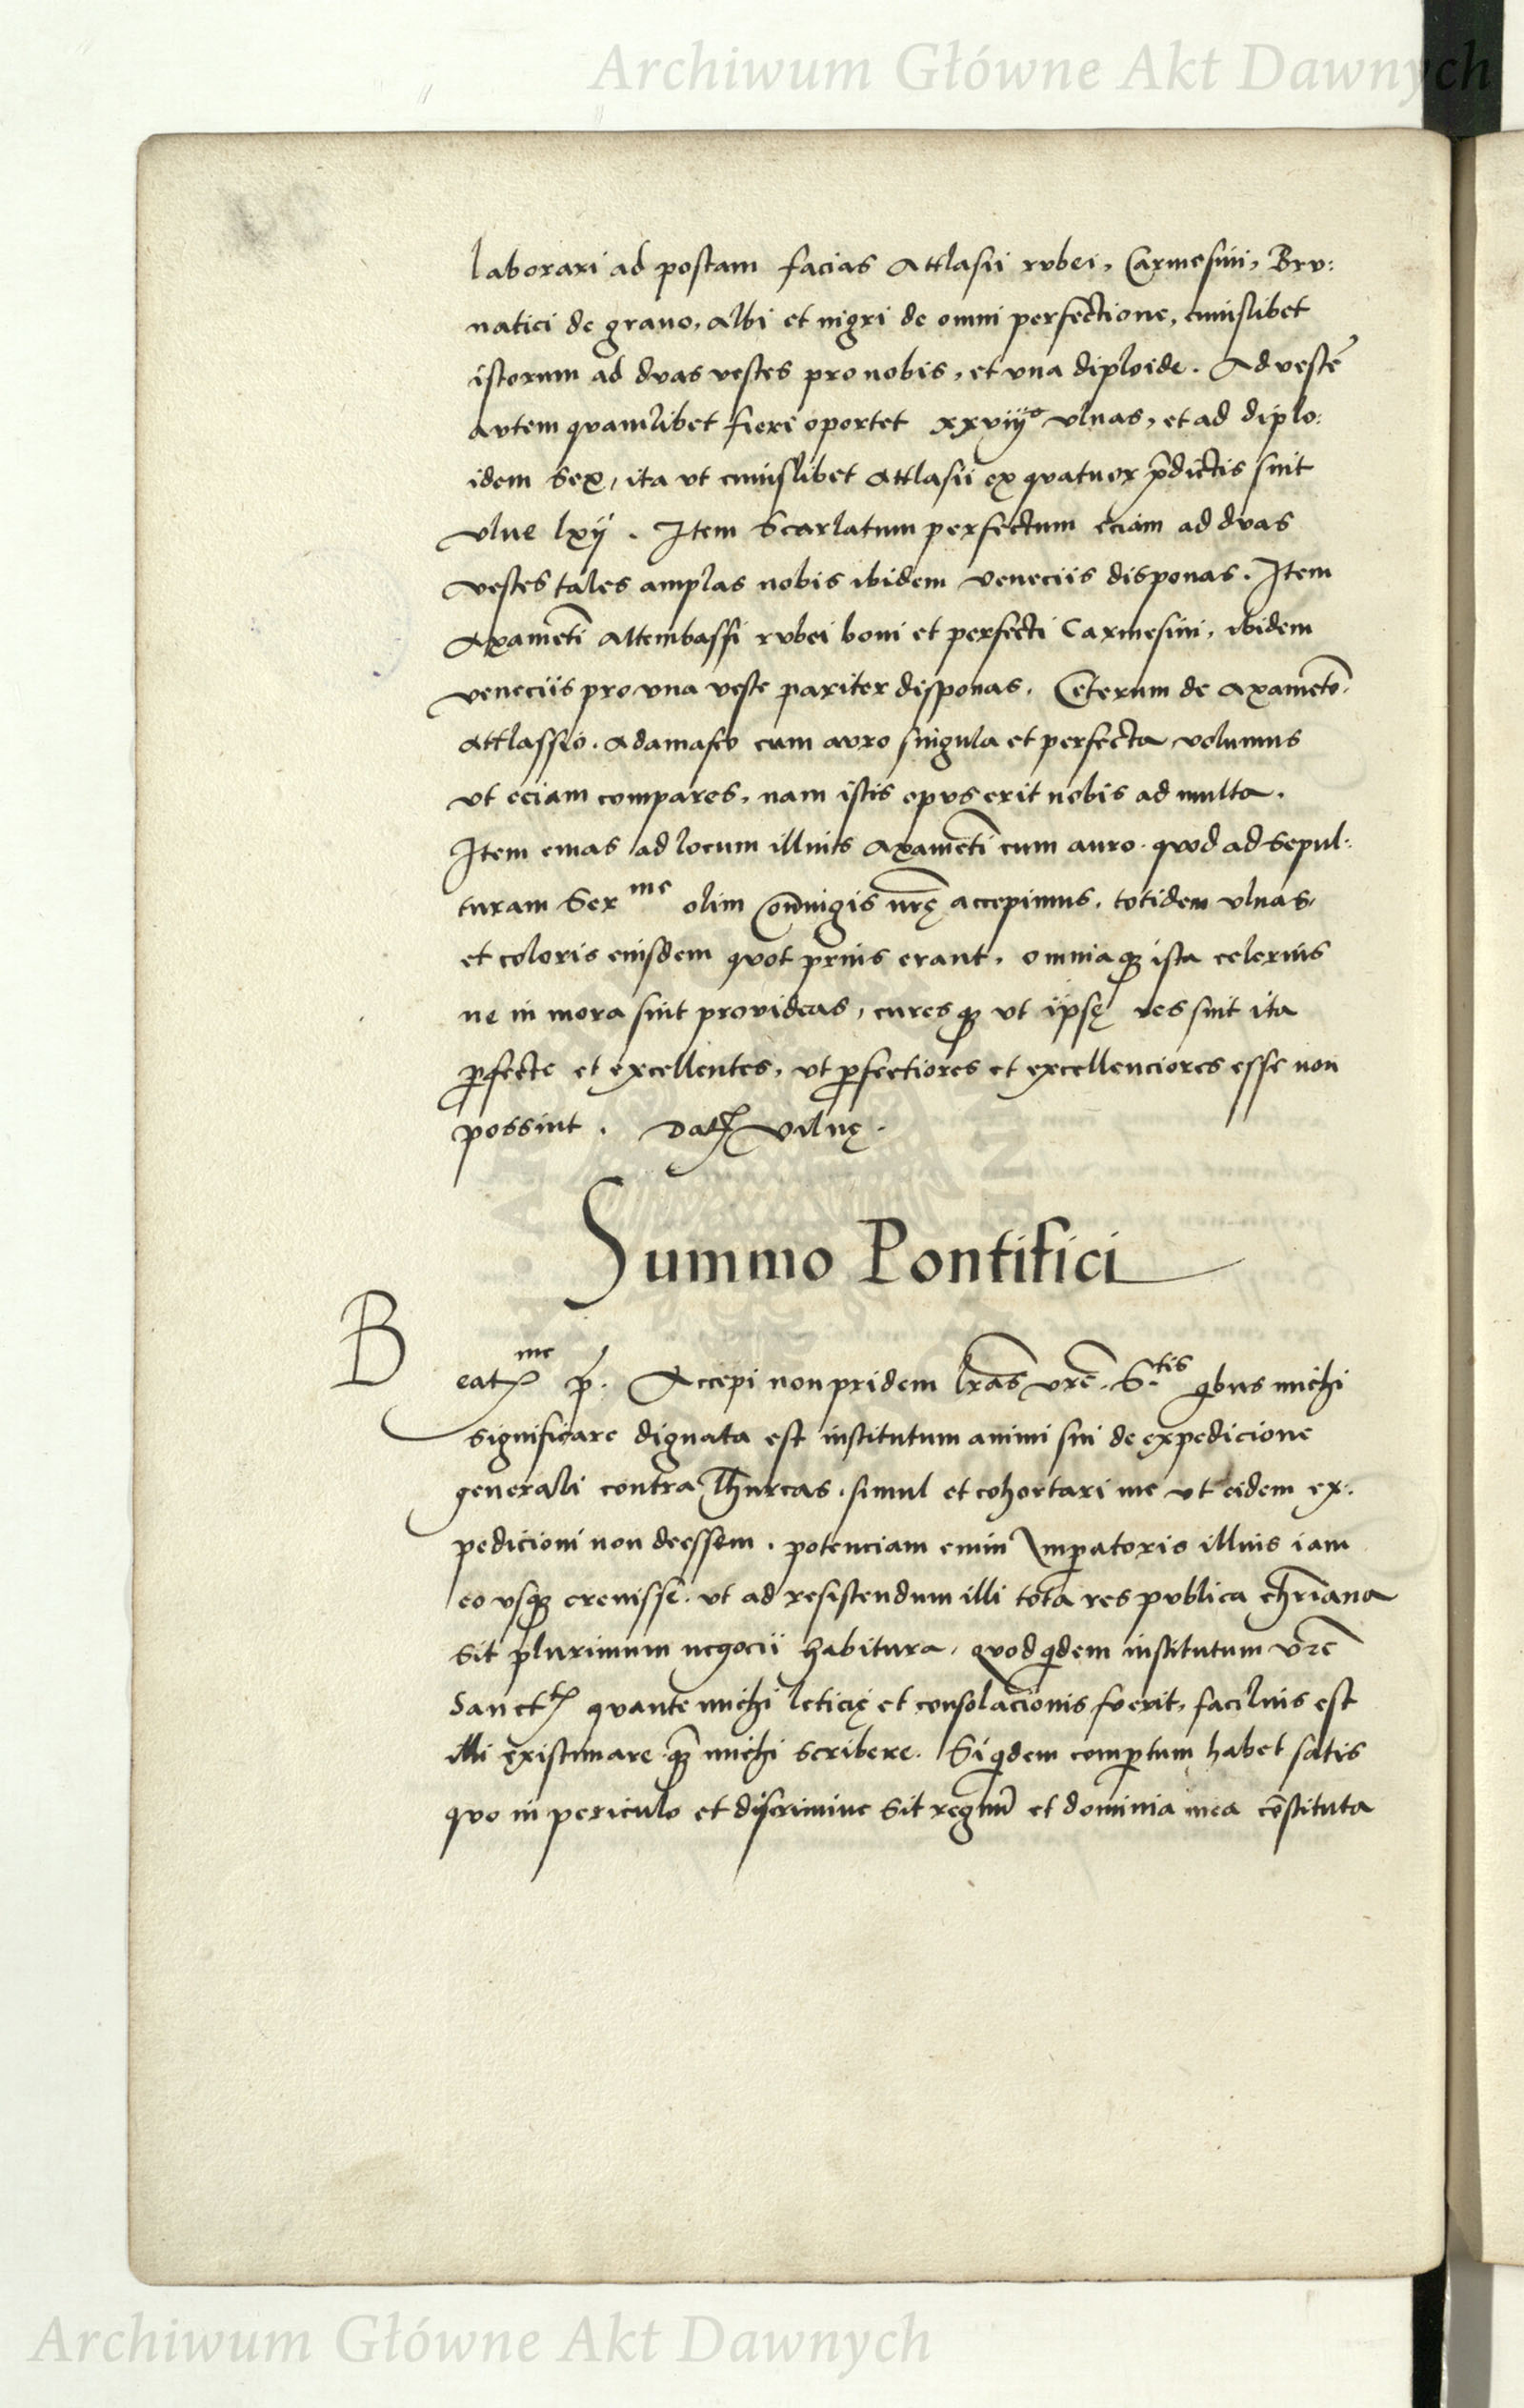 Archiwum Główne Akt Dawnych
laborari ad postam facias Attlasii rubei, Carmesini, Bru:
natici de grano, albi et nigri de omni perfectione, cuiuslibet
istorum ad duas vestes pro nobis, et una diploide. Ad vestē
autem quamlibet fieri oportet xxviijo ulnas, et ad diplo:
idem sex, ita ut cuiuslibet Attlasii ex quatuor p̄dictis sint
ulne lxij. Item Scarlatum perfectum eciam ad duas
vestes tales amplas nobis ibidem Veneciis disponas. Item
Axamēti Altembassi rubei boni et perfecti Carmesini, ibidem
Veneciis pro una veste pariter disponas. Ceterum de axamēto,
Attlassio, Adamasco cum auro singula et perfecta volumus
ut eciam compares, nam istis opus erit nobis ad multa.
Item emas ad locum illius Axamēti cum auro, quod ad sepul:
turam Serme olim cōiugis nr̄ę accepimus, totidem ulnas,
et coloris eiusdem quot prius erant, omniaq; ista celerius
ne in mora sint provideas, curesq; ut ipsę res sint ita
ꝑfecte et excellentes, ut ꝑfectiores et excellenciores esse non
possint. Dat. Vilnę.
Summo Pontifici
Beatme p̄. Accepi non pridem lr̄as vr̄e S.tis qibus michi
significare dignata est institutum animi sui de expedicione
generali contra Thurcas, simul et cohortari me ut eidem ex:
pedicioni non deessem, potenciam enim Imꝑatoris illius iam
eo usq; crevisse, ut ad resistendum illi tota res publica chr̄iana
sit plurimum negocii habitura, quod qidem institutum vr̄e
Sanctt. quante michi leticię et consolacionis fuerit, facilius est
illi existimare q̄ michi scribere. Siqidem comꝑtum habet satis
quo in periculo et discrimine sit regnū et dominia mea cōstituta
Archiwum Główne Akt Dawnych